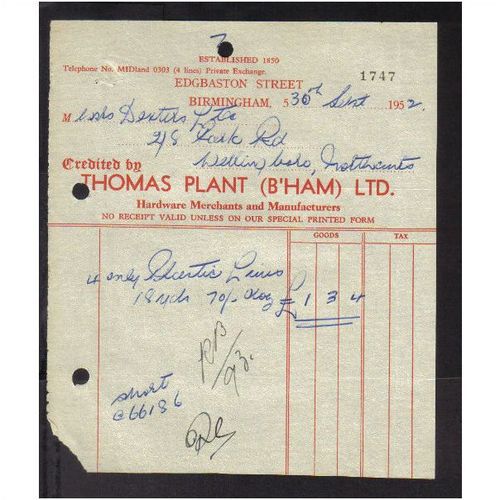 7
ESTABLISHED 1850
Telephone No. MIDland 0303 (4 lines) Private Exchange.
EDGBASTON STREET
1747
BIRMINGHAM, 5 30th Sept 1952
M Dexters Ltd
Park Rd
Wellinboro, Northants
Credited by
THOMAS PLANT (B'HAM) LTD.
Hardware Merchants and Manufacturers
NO RECEIPT VALID UNLESS ON OUR SPECIAL PRINTED FORM
GOODS TAX
4 only Lines
18 yds 70/- doz £ 1 3 4
short
C66186